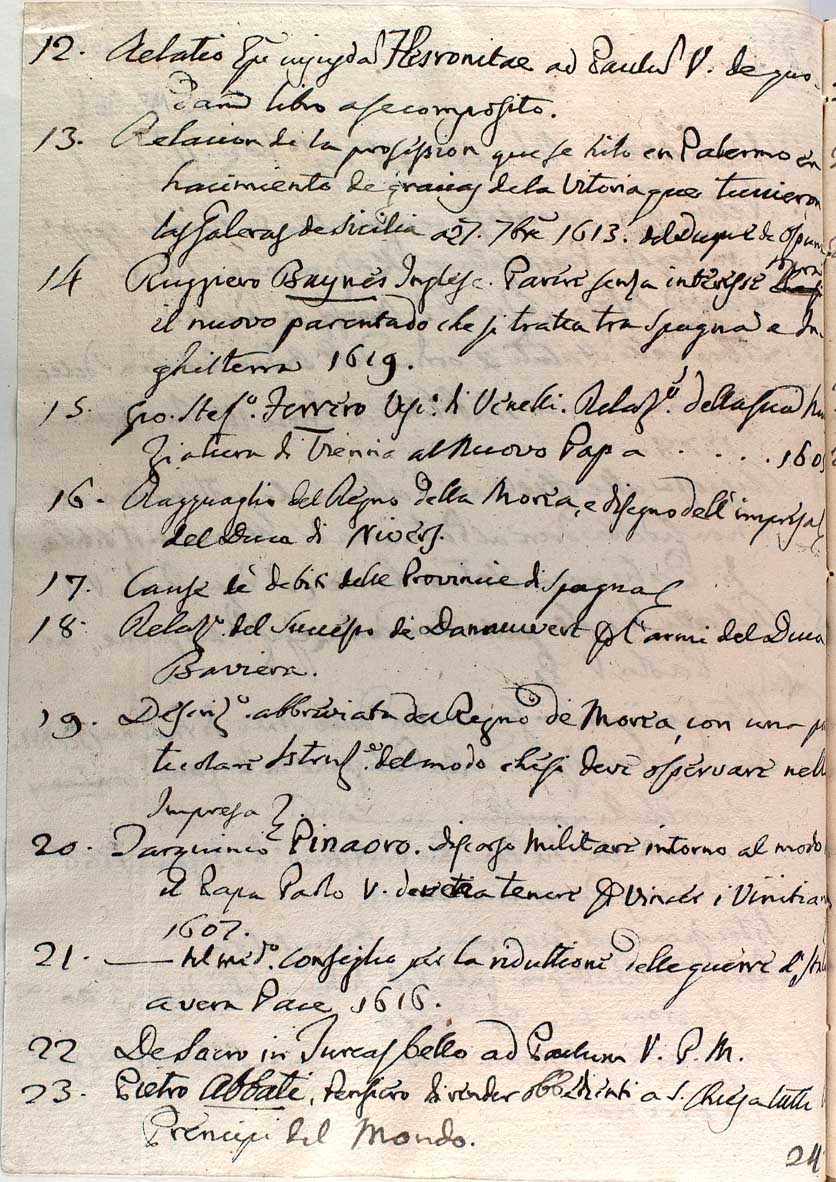 12. Relatio Hesronitae ad Paulu V. de quo-
dam libro a se composito.
13. Relacion di la profission que se hito en Palermo en
hacimiento de gracias de la Vitoria que tuvieron
las Galeras de Sicilia a 27. 7bre 1613. del Duque de Ossuna
14 Ruggiero Baynes Inglese. Parere senza interesse
il nuovo parentado che si tratta tra Spagna e In-
ghilterra 1619.
15. Gio. Stefo. Ferrero Vesco. di Vercelli. Relazo. della sua Nu
ziatura di Vienna al Nuovo Papa . . . . 160
16. Ragguaglio del Regno della Morea, e disegno dell'impresa
del Duca di Nivers.
17. Cause de debiti delle Provincie di Spagna
18. Relaze. del Successo de Danauwert l'armi del Duca
Baviera.
19. Descrize. abbreviata del Regno de Morea, con una p
ticolare Istruze. del modo che si deve osservare nell
Impresa
20. Tarquinio Pinaoro. discorso Militare intorno al modo
il Papa Paolo V. tenere Vincer i Vinitian
1607.
21. — del medo. Consiglio per la riduttione delle guerre d'
a vera Pace 1616.
22 De Sacro in Turcas bello ad Paulum V. P. M.
23. Pietro Abbati, Pensiero di render obbedienti a S. Chiesa tutti
Principi del Mondo.
24